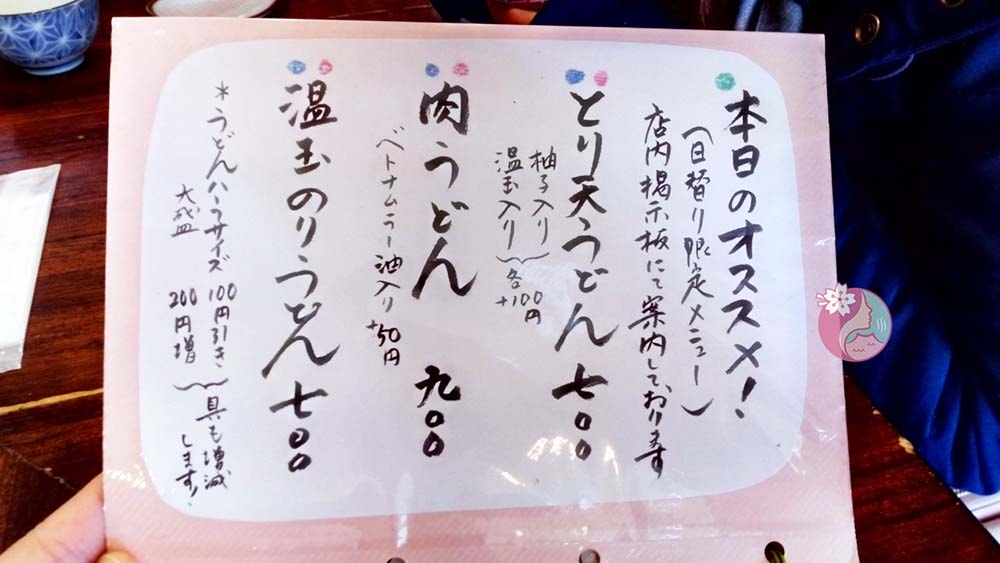 本日のオススメ!
(日替り限定メニュー)
店内掲示板にて案内しております
とり天うどん 七〇〇
柚子入り
温玉入り
各+100円
肉うどん 九〇〇
ベトナムラー油入り +50円
温玉のりうどん 七〇〇
*うどんハーフサイズ 100円引き
大盛 200円増
具も増減
します。